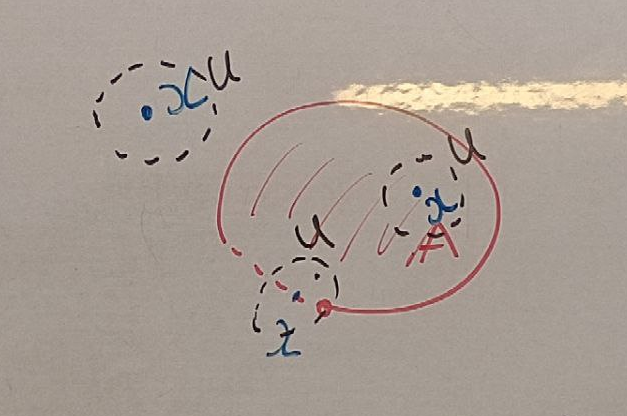 x U
U
x
A
U
x